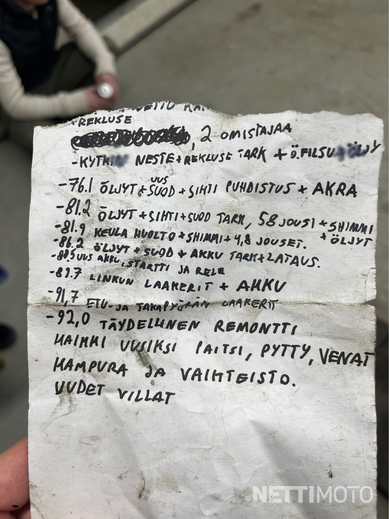 REKLUSE
, 2 OMISTAJAA
-KYTKIN NESTE + REKLUSE TARK + Ö.FILSU + ÖLJY
-76.1 ÖLJYT + UUS SUOD + SIHTI PUHDISTUS + AKRA
-81.2 ÖLJYT + SIHTI + SUOD TARK, 58 JOUSI + SHIMMI + ÖLJYT
-81.9 KEULA HUOLTO + SHIMMI + 4,8 JOUSET.
-86.2 ÖLJYT + SUOD + AKKU TARK + LATAUS.
UUS AKKU, STARTTI JA RELE
-89.7 LINKUN LAAKERIT + AKKU
-91,7 ETU- JA TAKAPYÖRÄN LAAKERIT
-92,0 TÄYDELLINEN REMONTTI
KAIKKI UUSIKSI PAITSI, PYTTY, VENAT
KAMPURA JA VAIHTEISTO.
UUDET VILLAT
NETTIMOTO